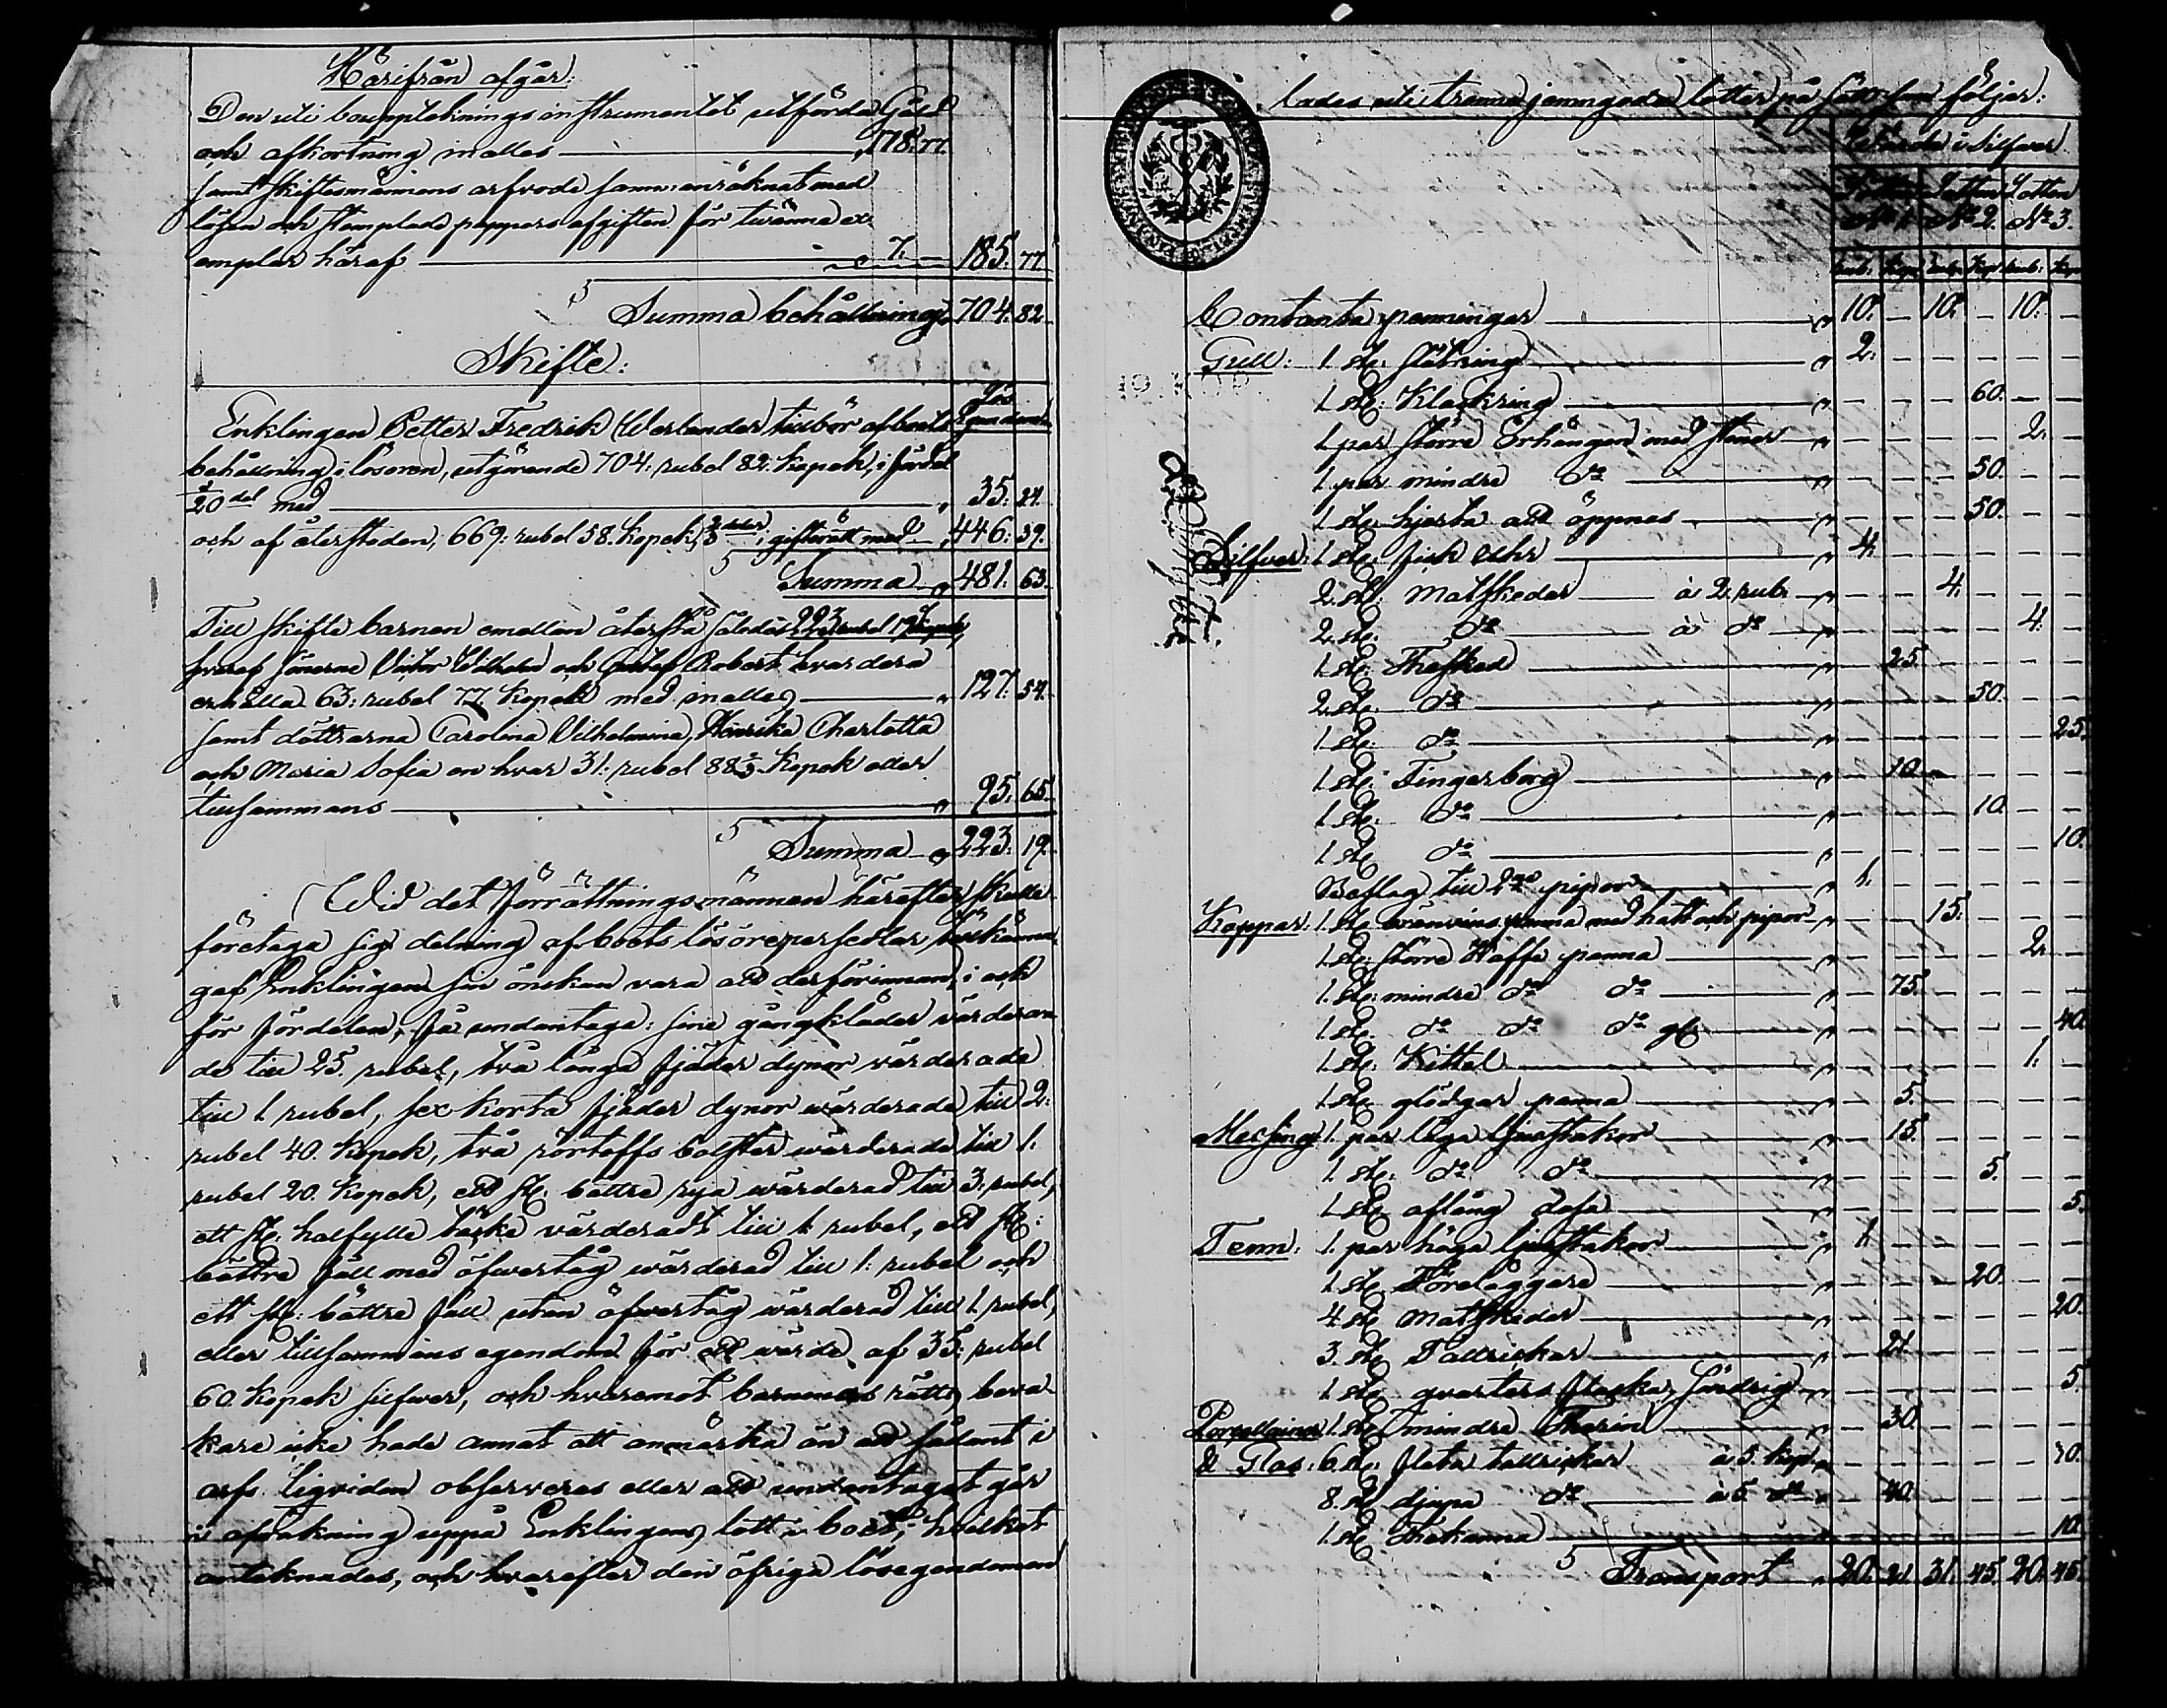 Härifrån afgår:
Den uti bouppteknings instrumentet utförda Gäld
och afkortning inalles — 178: 77.
samt Skiftesmännens arfvode sammanräknat med
lösen och stämplade pappers afgiften för tvänne ex-
emplar häraf — 7. — 185: 77.
Summa behållning 704: 82.
Skifte:
Lös
Egendom
Enklingen Petter Fredrik Werlander tillbör af boets
behållning i lösören, utgörande 704: rubel 82. kopek, i fördel
1/20 del med — 35: 24.
och af återstoden, 669: rubel 58. kopek, 2/3 delar i giftorätt med 446: 39.
Summa 481: 63.
Till skifte barnen emellan återstå således 223 rubel 19 kopek,
hvaraf sönerne Victor Wilhelm och Gustaf Robert hvardera
erhålla 63: rubel 77. kopek med inalles — 127: 54.
samt döttrarna Carolina Vilhelmina, Henrika Charlotta
och Maria Sofia en hvar 31: rubel 88 1/3 kopek eller
tillsammans — 95: 65.
Summa 223: 19.
Wid det Förrättningsmännen härefter skulle
företaga sig delning af boets lösörepersedlar
gaf Enklingen sin önskan vara att derförinnan, i och
för fördelen, få undantaga: sine gångkläder värdera-
de till 25. rubel, två långa fjäder dynor värderade
till 1. rubel, sex korta fjäder dynor wärderade till 2:
rubel 40. kopek, två bolster wärderade till 1:
rubel 20. kopek, ett st: bättre rya wärderad till 3: rubel,
ett st: halfylle täcke värderadt till 1. rubel, ett st:
bättre fäll med öfwertåg wärderad till 1: rubel och
ett st: bättre fäll utan öfwertåg wärderad till 1. rubel,
eller tillsammans egendom för ett wärde af 35: rubel
60. kopek silfwer, och hvaremot barnens rätts beva-
kare icke hade annat att anmärka än att sådant i
arfs liqviden observeras eller att undantaget går
i afräkning uppå Enklingens lott i boet; hvilket
anteknades, och hvarefter den öfriga lösegendomen
lades uti trenne jemngoda lotter på sätt som följer:
Värde i Silfver
Lotten Lotten Lotten
No 1. No 2. No 3.
Rub: Kop: Rub: Kop: Rub: Kop:
Contanta penningar — 10. — 10. — 10. —
Gull: 1. st: slätring — 2.
1. st: Klackring — 60.
1. par större Örhängen med stenar — 2.
1. par mindre do — 50.
1. st: hjerta att öppnas — 50.
Silfver: 1. st: fick Uhr — 4.
2. st: Matskedar — à 2. rub. — 4.
2. st: do — à do — 4.
1. st: Thesked — 25.
2. st: do — 50.
1. st: do — 25.
1. st: Fingerborg — 10.
1. st: do — 10.
1. st: do — 10.
Beslag till 2ne pipor — 1.
Koppar: 1. st: bränvins panna med hatt och pipor — 15.
1. st: större Kaffe panna — 2.
1. st: mindre do do — 75.
1. st: do do do gl: — 40.
1. st: Kittel — 1.
1. st: glödgar panna — 5.
Messing: 1. par låga ljusstakar — 15.
1. st: do do — 5.
1. st: aflång dosa — 5.
Tenn: 1. par höga ljusstakar — 1.
1. st: Föreläggare — 20.
4. st: Matskedar — 20.
3. st: Tallrickar — 21.
1. st: qvarters flaska, — 5.
Porcellaine 1. st: mindre Therin — 30.
& Glas: 6. st: flata tallrickar à 5. kop. — 30.
8. st: djupa do à 5. do — 40.
1. st: Thekanna — 10.
Transport — 20. 21. 31. 45. 20. 45.